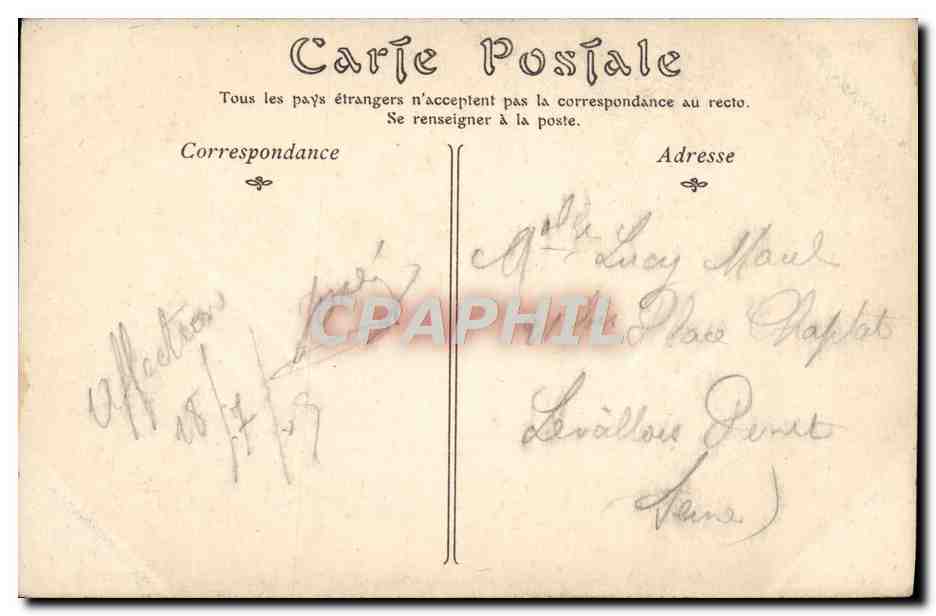 Carte Postale
Tous les pays étrangers n'acceptent pas la correspondance au recto.
Se renseigner à la poste.
Correspondance
Adresse
Affection
18/7/
Mlle Lucy Maul
Place Chaptal
Levallois Perret
Seine)
CPAPHIL